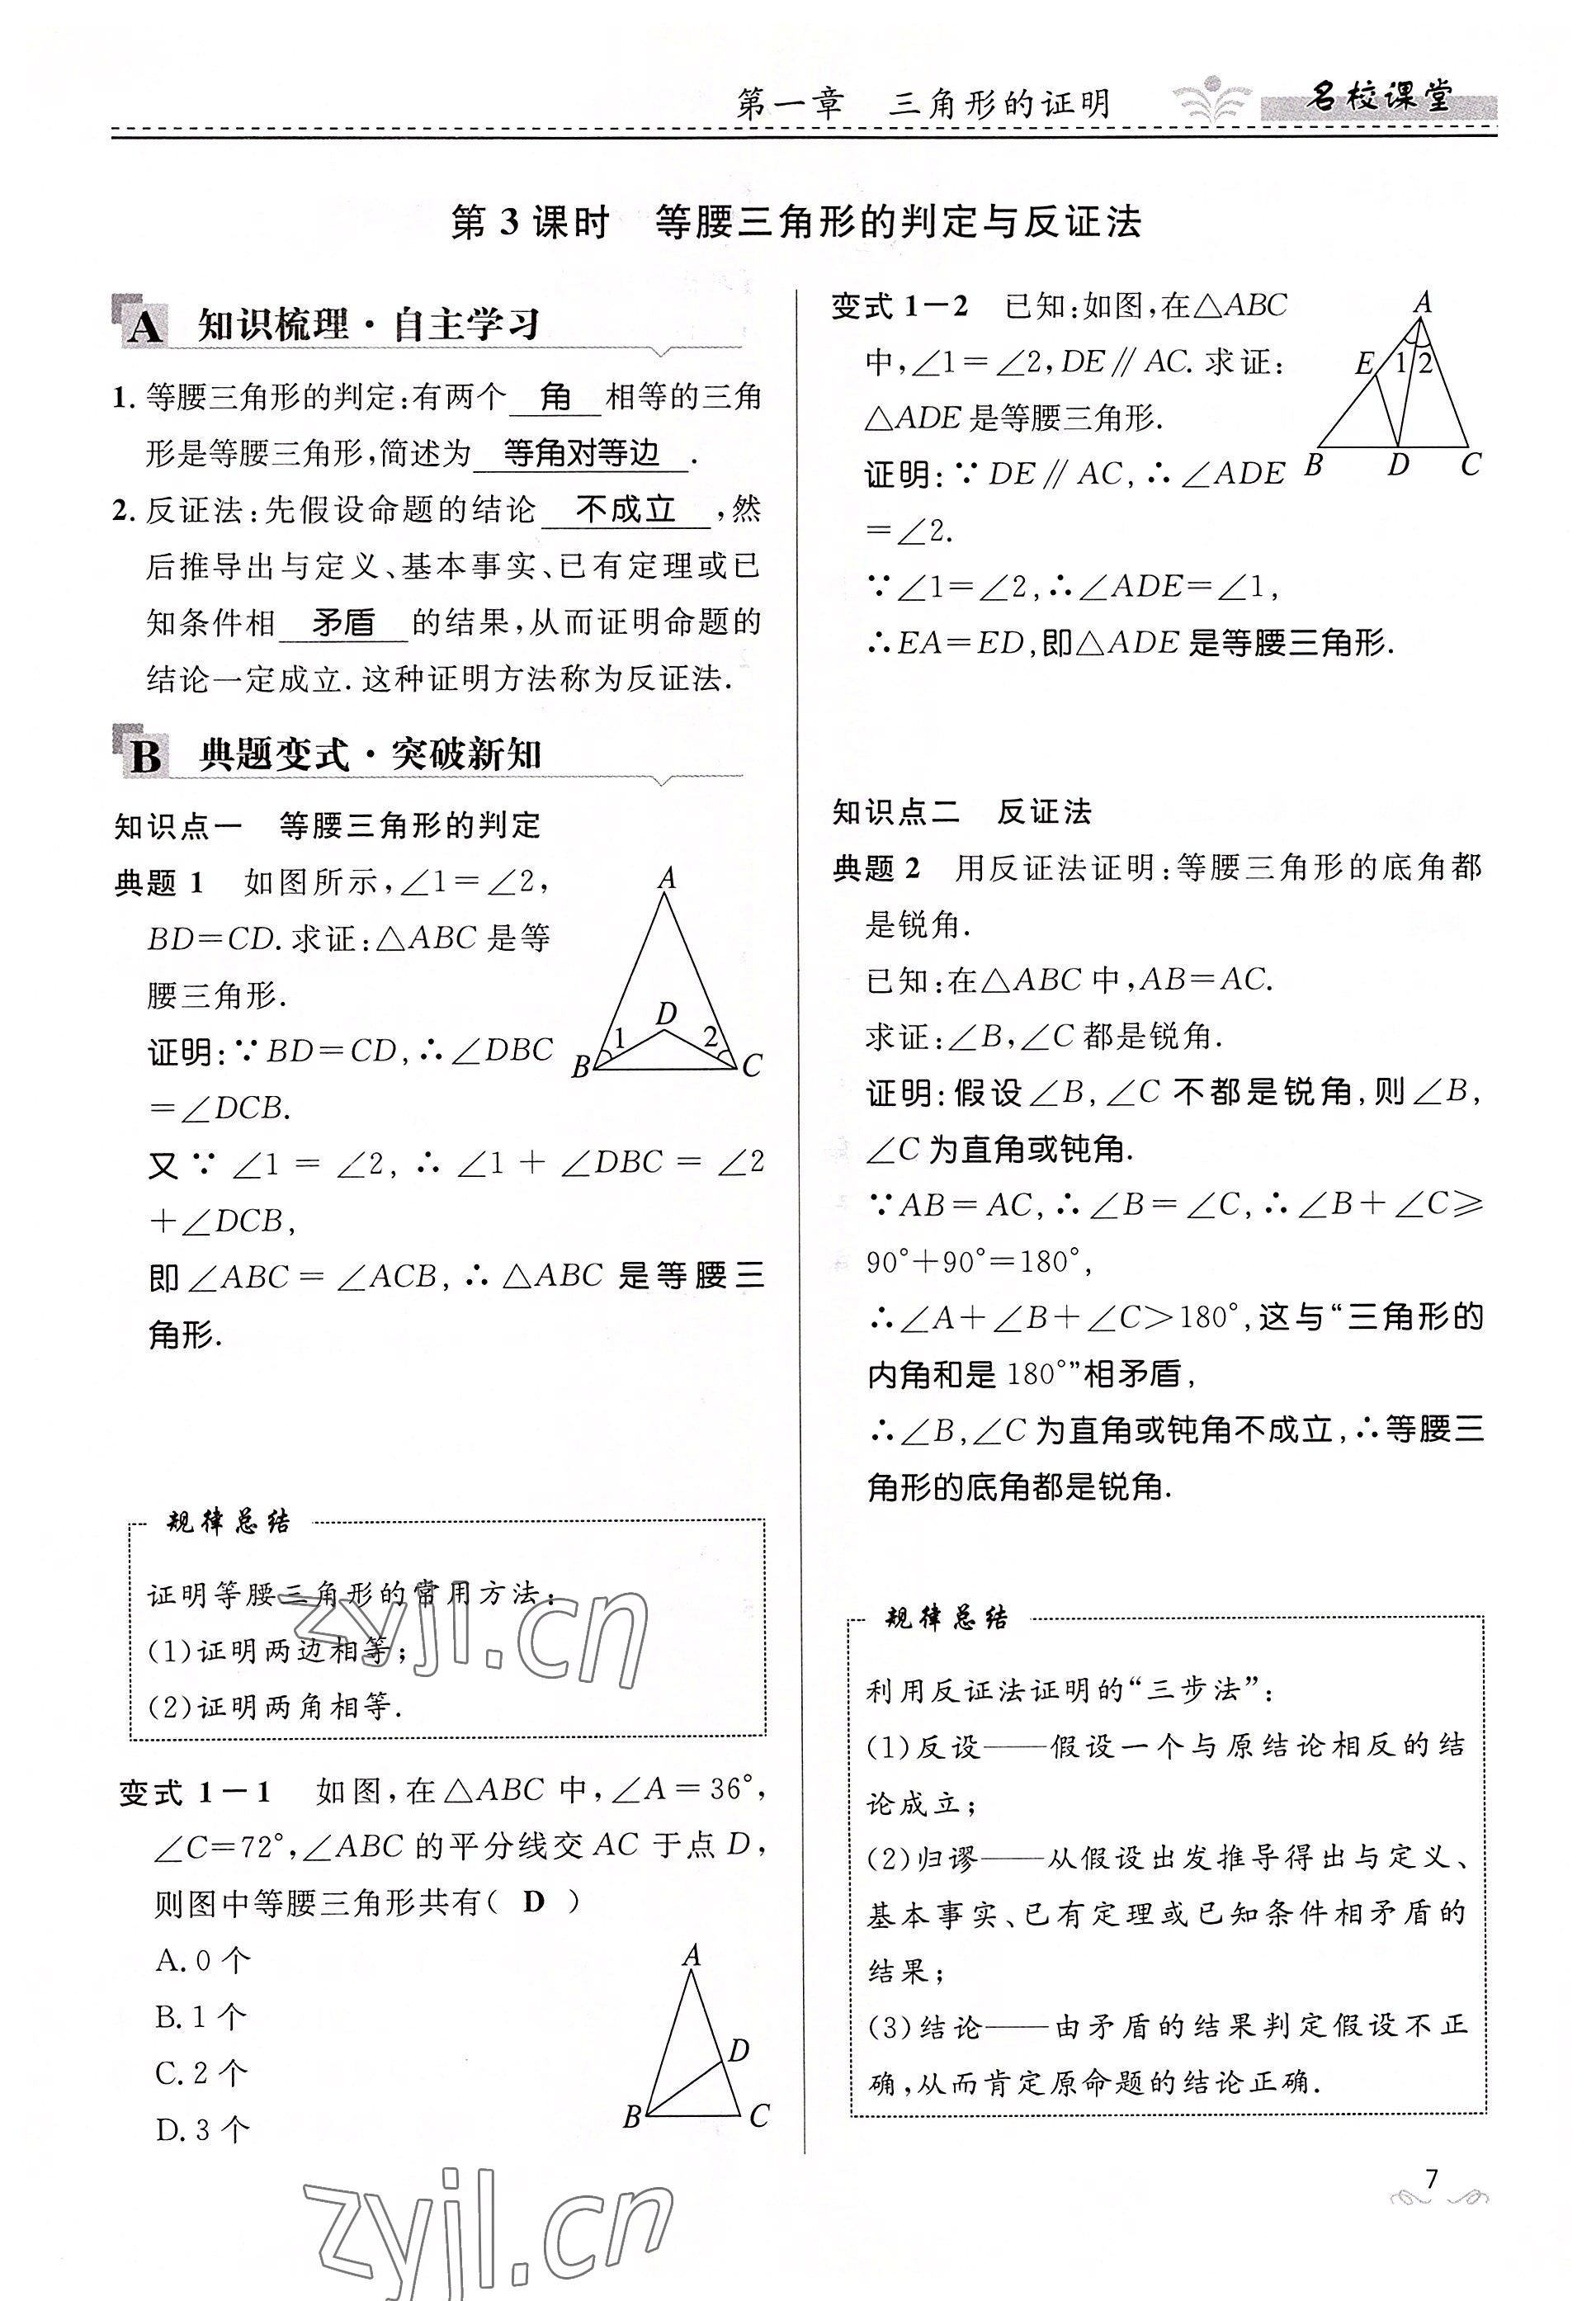 第一章 三角形的证明
名校课堂
第 3 课时 等腰三角形的判定与反证法
A 知识梳理·自主学习
1. 等腰三角形的判定:有两个 角 相等的三角
形是等腰三角形,简述为 等角对等边 .
2. 反证法:先假设命题的结论 不成立 ,然
后推导出与定义、基本事实、已有定理或已
知条件相 矛盾 的结果,从而证明命题的
结论一定成立.这种证明方法称为反证法.
B 典题变式·突破新知
知识点一 等腰三角形的判定
典题 1 如图所示,∠1=∠2,
BD=CD.求证:△ABC 是等
腰三角形.
证明:∵BD=CD,∴∠DBC
=∠DCB.
又∵∠1=∠2,∴∠1+∠DBC=∠2
+∠DCB,
即∠ABC=∠ACB,∴△ABC 是等腰三
角形.
A
D
1
2
B
C
规律总结
证明等腰三角形的常用方法:
(1)证明两边相等;
(2)证明两角相等.
zyjl.cn
变式 1-1 如图,在△ABC 中,∠A=36°,
∠C=72°,∠ABC 的平分线交 AC 于点 D,
则图中等腰三角形共有( D )
A.0 个
B.1 个
C.2 个
D.3 个
A
D
B
C
zyjl.cn
变式 1-2 已知:如图,在△ABC
中,∠1=∠2,DE∥AC.求证:
△ADE 是等腰三角形.
证明:∵DE∥AC,∴∠ADE
=∠2.
∵∠1=∠2,∴∠ADE=∠1,
∴EA=ED,即△ADE 是等腰三角形.
A
E
1
2
B
D
C
知识点二 反证法
典题 2 用反证法证明:等腰三角形的底角都
是锐角.
已知:在△ABC 中,AB=AC.
求证:∠B,∠C 都是锐角.
证明:假设∠B,∠C 不都是锐角,则∠B,
∠C 为直角或钝角.
∵AB=AC,∴∠B=∠C,∴∠B+∠C≥
90°+90°=180°,
∴∠A+∠B+∠C>180°,这与“三角形的
内角和是 180°”相矛盾,
∴∠B,∠C 为直角或钝角不成立,∴等腰三
角形的底角都是锐角.
规律总结
利用反证法证明的“三步法”:
(1)反设——假设一个与原结论相反的结
论成立;
(2)归谬——从假设出发推导得出与定义、
基本事实、已有定理或已知条件相矛盾的
结果;
(3)结论——由矛盾的结果判定假设不正
确,从而肯定原命题的结论正确.
7